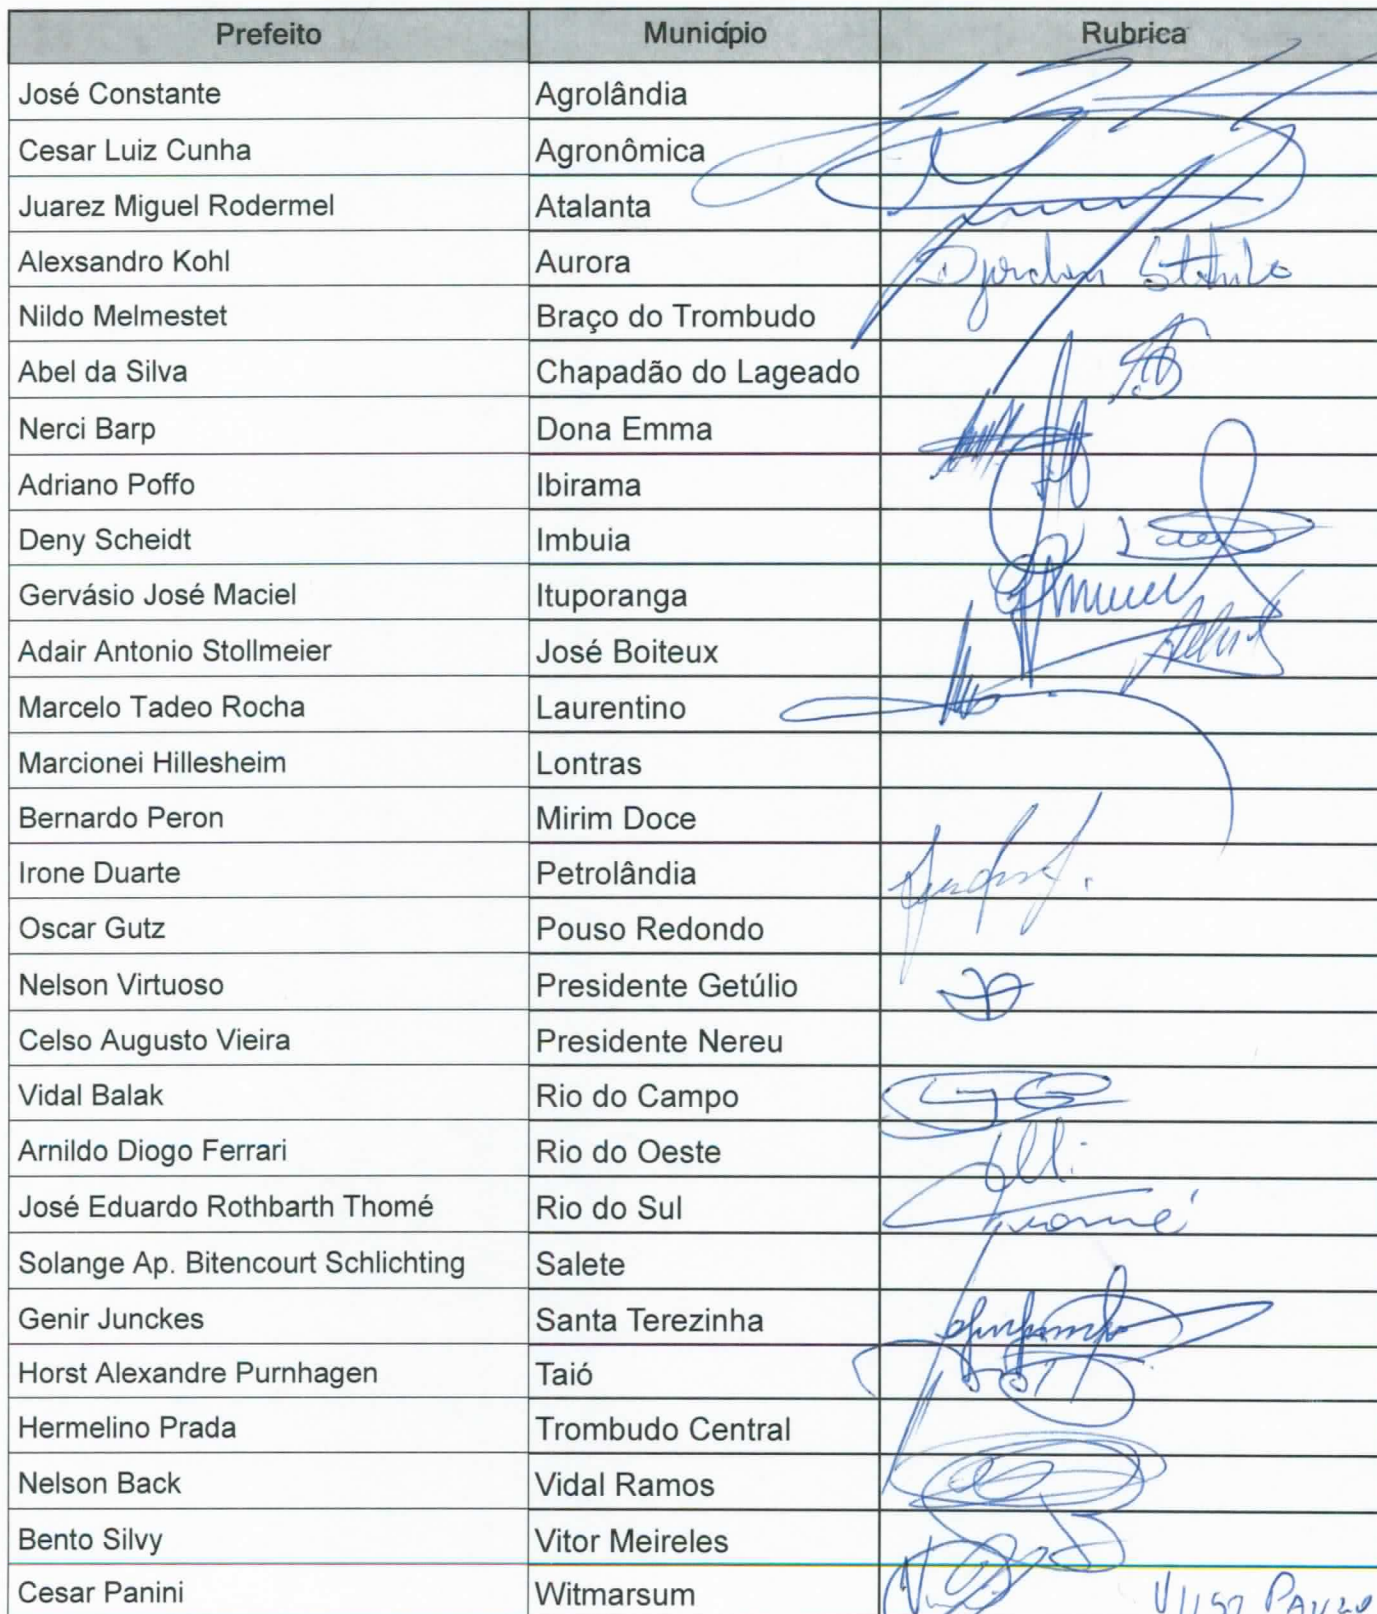 Prefeito Município Rubrica
José Constante Agrolândia
Cesar Luiz Cunha Agronômica
Juarez Miguel Rodermel Atalanta
Alexsandro Kohl Aurora
Nildo Melmestet Braço do Trombudo
Abel da Silva Chapadão do Lageado
Nerci Barp Dona Emma
Adriano Poffo Ibirama
Deny Scheidt Imbuia
Gervásio José Maciel Ituporanga
Adair Antonio Stollmeier José Boiteux
Marcelo Tadeo Rocha Laurentino
Marcionei Hillesheim Lontras
Bernardo Peron Mirim Doce
Irone Duarte Petrolândia
Oscar Gutz Pouso Redondo
Nelson Virtuoso Presidente Getúlio
Celso Augusto Vieira Presidente Nereu
Vidal Balak Rio do Campo
Arnildo Diogo Ferrari Rio do Oeste
José Eduardo Rothbarth Thomé Rio do Sul
Solange Ap. Bitencourt Schlichting Salete
Genir Junckes Santa Terezinha
Horst Alexandre Purnhagen Taió
Hermelino Prada Trombudo Central
Nelson Back Vidal Ramos
Bento Silvy Vitor Meireles
Cesar Panini Witmarsum